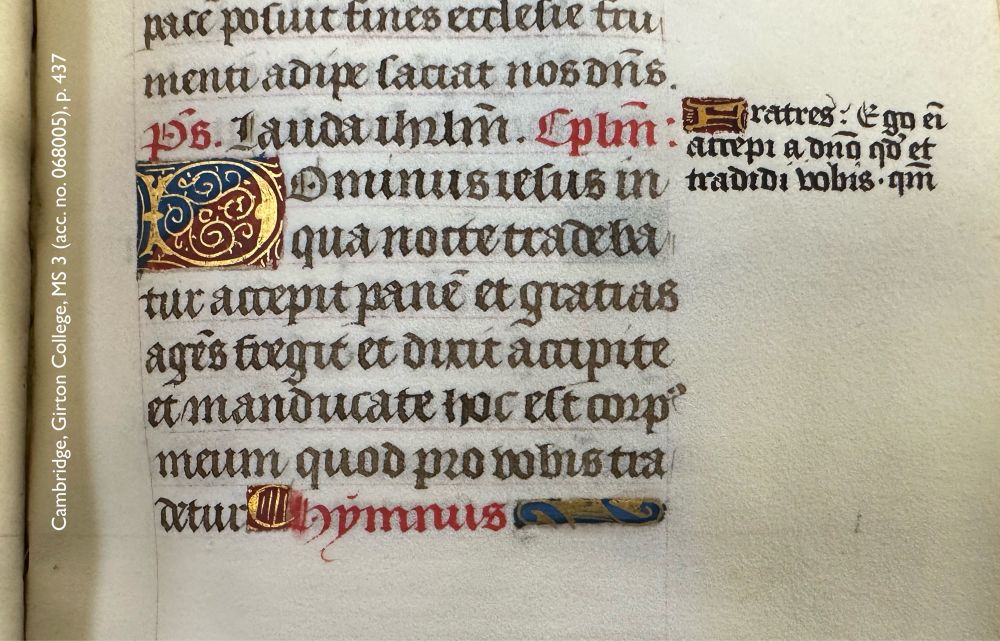 pace posuit fines ecclesie fru
menti adipe saciat nos dn̄s.
Ps. Lauda ihrl̄m. Cpl̄m:
Dominus iesus in
qua nocte tradeba
tur accepit panē et gratias
agēs fregit et dixit accipite
et manducate hoc est corpꝰ
meum quod pro vobis tra
detur hÿmnus
Fratres: Ego ei̅
accepi a dn̄o qd̄ et
tradidi vobis. qm̄
Cambridge, Girton College, MS 3 (acc. no. 068005), p. 437